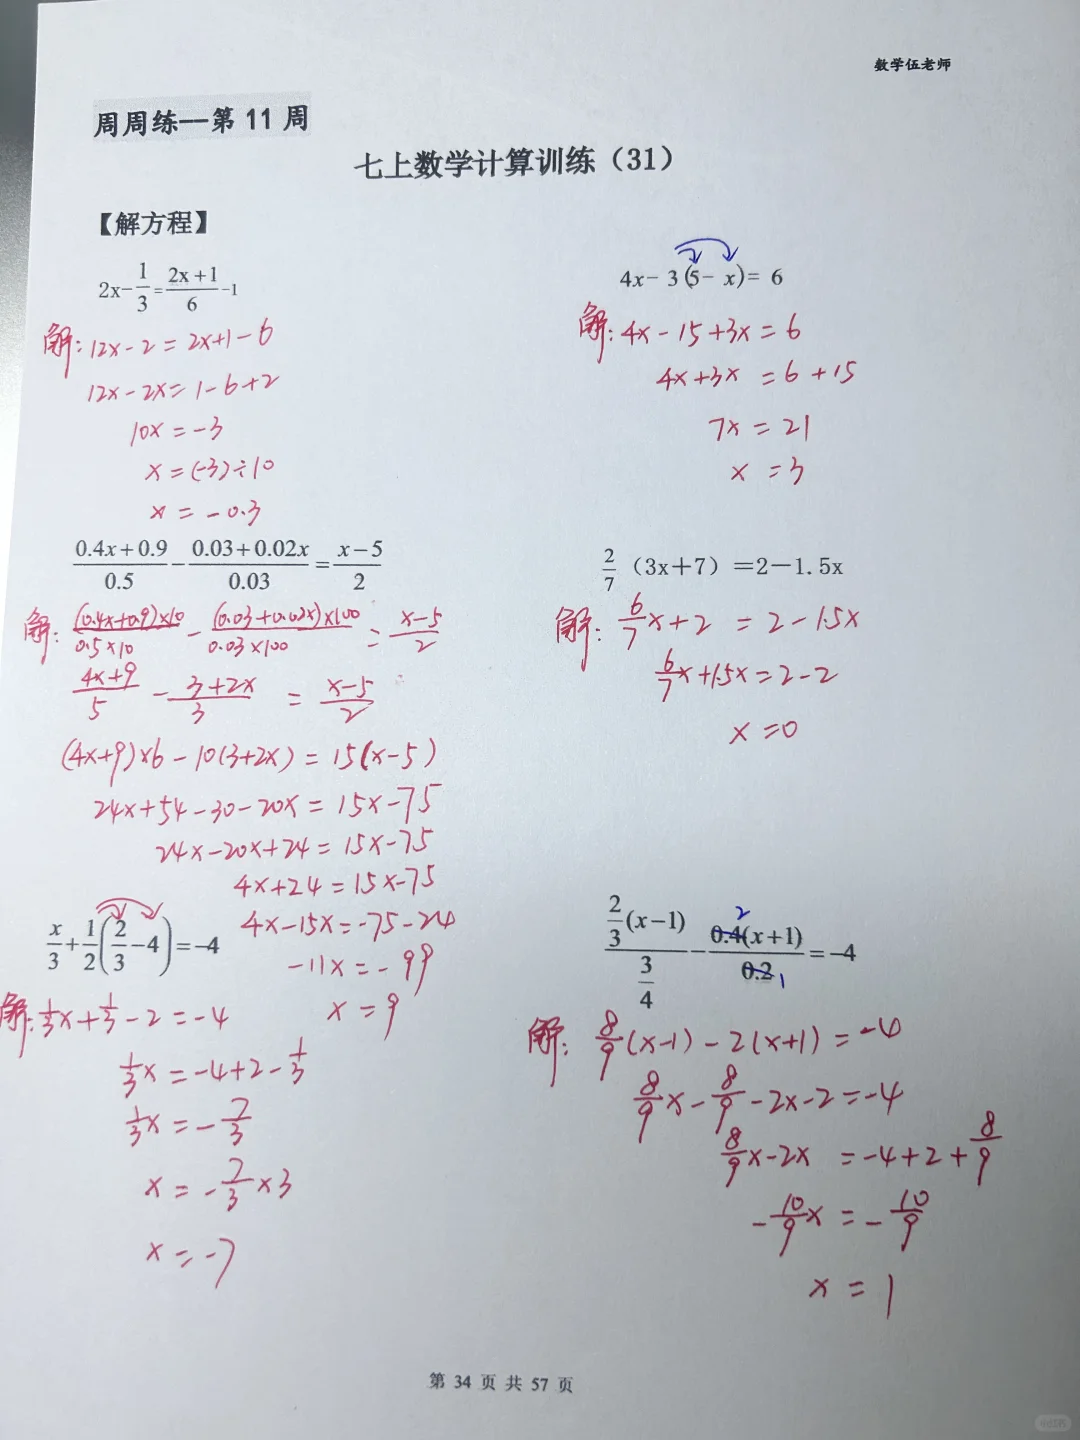 数学伍老师
周周练—第 11 周
七上数学计算训练（31）
【解方程】
2x-1/3=(2x+1)/6-1
解: 12x-2=2x+1-6
12x-2x=1-6+2
10x=-3
x=(-3)÷10
x=-0.3
4x-3(5-x)=6
解: 4x-15+3x=6
4x+3x=6+15
7x=21
x=3
(0.4x+0.9)/0.5-(0.03+0.02x)/0.03=(x-5)/2
解: (0.4x+0.9)×10/0.5×10-(0.03+0.02x)×100/0.03×100=(x-5)/2
(4x+9)/5-(3+2x)/3=(x-5)/2
(4x+9)×6-10(3+2x)=15(x-5)
24x+54-30-20x=15x-75
24x-20x+24=15x-75
4x+24=15x-75
4x-15x=-75-24
-11x=-99
x=9
2/7（3x+7）=2-1.5x
解: 6/7x+2=2-1.5x
6/7x+1.5x=2-2
x=0
x/3+1/2(2/3-4)=-4
解: 1/3x+1/3-2=-4
1/3x=-4+2-1/3
1/3x=-7/3
x=-7/3×3
x=-7
2/3(x-1)/3/4-0.4(x+1)/0.2=-4
2
1
解: 8/9(x-1)-2(x+1)=-4
8/9x-8/9-2x-2=-4
8/9x-2x=-4+2+8/9
-10/9x=-10/9
x=1
第 34 页 共 57 页